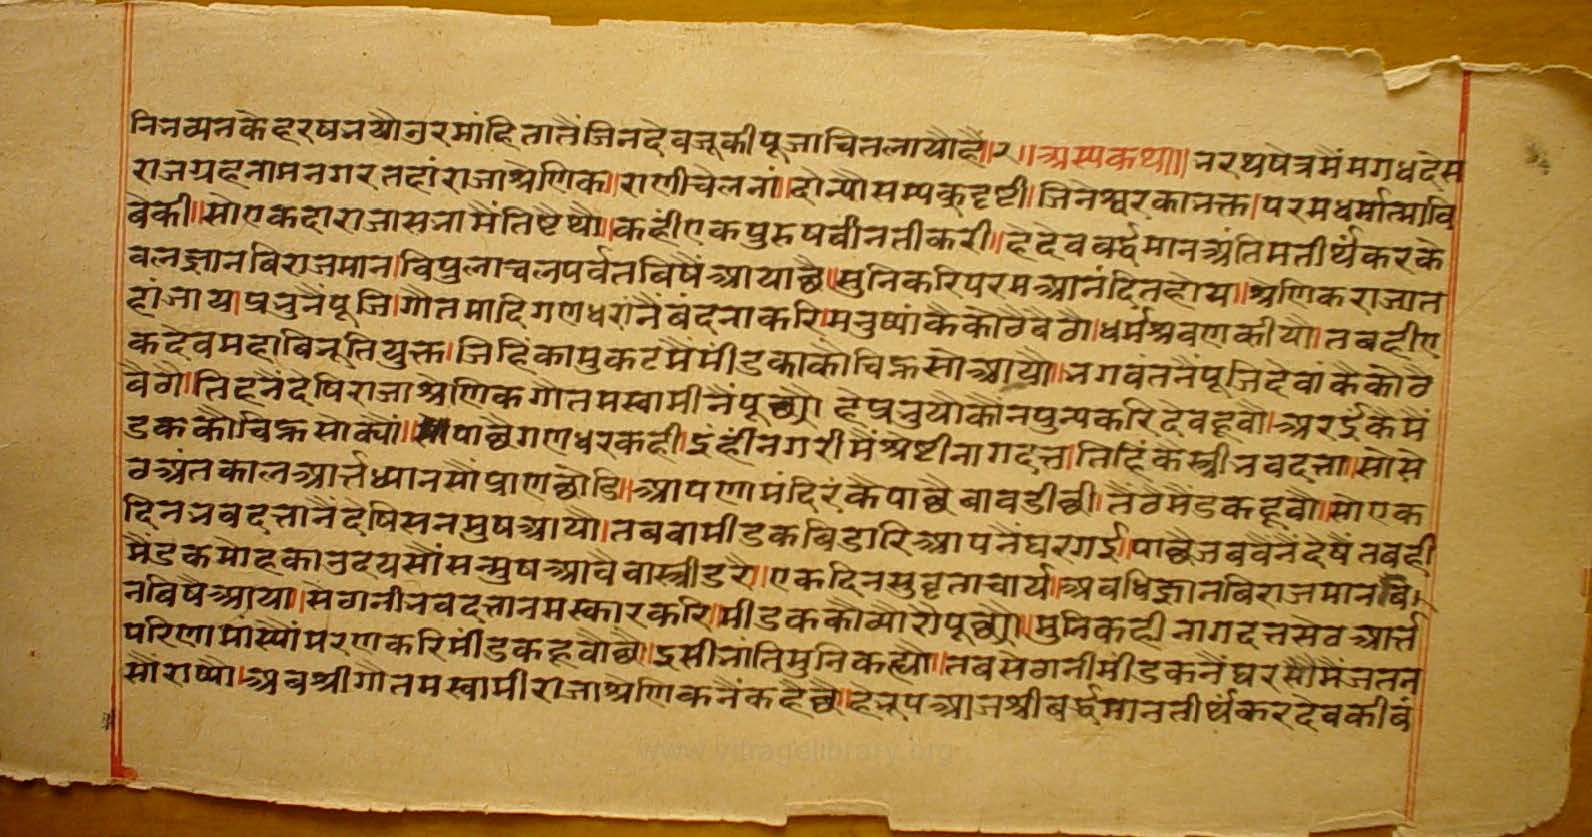 तिनव्यनकेहरषनयौउरमांहितातैंजिनदेवजूकीपूजाचितलायौहै॥२॥अस्यकथा॥नरथषेत्रमैंमगधदेस
राजग्रहनामनगरतहांराजाश्रेणिक॥राणीचेलनां॥दोन्यौसम्यक्दृष्टी।जिनेश्वरकानक्त।परमधर्मात्मावि
बेकी॥सोएकदाराजासनामैंतिष्टैथौ॥कहींएकपुरुषबीनतीकरी॥हेदेववर्द्धमानअंतिमतीर्थंकरके
वलज्ञानबिराजमान।विपुलाचलपर्वतबिषैंआयाछै॥सुनिकरिपरमआनंदितहोय॥श्रेणिकराजात
हांजाय।प्रनुनैंपूजि।गौतमादिगणधरांनैंबंदनाकरि।मनुष्यांकैकोठैबैठौ।धर्मश्रवणकीयौ।तबहीए
कदेवमहाबिनूतियुक्त।जिहिंकामुकटमैंमींडकाकौचिह्नसोआयौ॥नगवंतनैंपूजिदेवांकैकोठै
बैठौ।तिहनैंदेषिराजाश्रेणिकगौतमस्वामीनैंपूछ्यौ हेप्रनुयोकौनपुन्यकरिदेवहूवौ।अरईकैमैं
डककौचिह्नसोक्यौं॥पाछैगणधरकही।इंहींनगरीमैंश्रेष्टीनागदत्त।तिहिंकैस्त्रीनवदत्ता॥सोसे
ठअंतकालआर्त्तध्यानसौंप्राणछोडि॥आपणामंदिरकैपाछैबावडीछी।तैंठैमैंडकहूवौ॥सोएक
दिननवदत्तानैंदेषिसनमुषआयौ।तबवामींडकबिडारिआपनैंघरगई।पाछैजबवैनैंदेषैंतबही
मैंडकमोहकाउदयसौंसन्मुषआवैवास्त्रीडरै।एकदिनसुवृताचार्य।अवधिज्ञानबिराजमान।बि
नबिषैआया॥सेठानीनवदत्तानमस्कारकरि।मींडककौव्यौरौपूछ्यौ॥मुनिकहीनागदत्तसेठआर्त्त
परिणामांस्यौंमरणकरिमींडकहूवौछै।इसीनांतिमुनिकह्यौ॥तबसेठानीमींडकनैंघरसौमैंजतन
सौंराष्यौ।अबश्रीगौतमस्वामीराजाश्रेणिकनैंकहैछै।हेनूपआजश्रीबर्द्धमानतीर्थंकरदेवकीबं
www.vitragelibrary.org